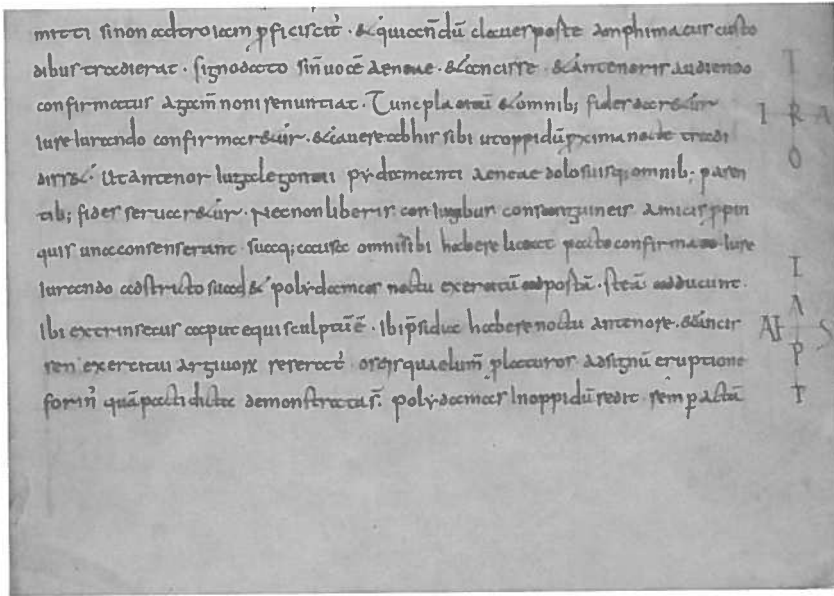 mitti sinon ad troiam pficiscit̄ · & quia eñdū claues poste amphimacus custo
dibus tradierat · signo dato sinuocē aeneae · & ancisse · & antenoris audiendo
confirmatus agam̄noni renuntiat · Tunc placitū & omnib; fides dar&ur
iureiurando confirmar&ur · & iauere abhis sibi ut oppidū pxima nocte tradi
diss& · Ut antenor
polydamanti aeneae dolo suisq; omnib; paren
tib; fides seruar&ur · Necnon liberis coniugibus consanguineis amicis ppin
quis una consenserunt suaq; causa omnī sibi habere liceat pacto confirmato iure
iurando adstricto suad& polydamas noctu exercitū ad postā · steā adducunt ·
Ibi extrinsecus caput equi sculptū ē · Ibi psidia habere noctu antenore · & ancis
sen exercitui argiuorx reserat̄
placuros ad signū eruptione
forin̄ quā pacti dicta demonstratur · polydamas In oppidū redit · sem
T
I R A
O
I
A S
P
T